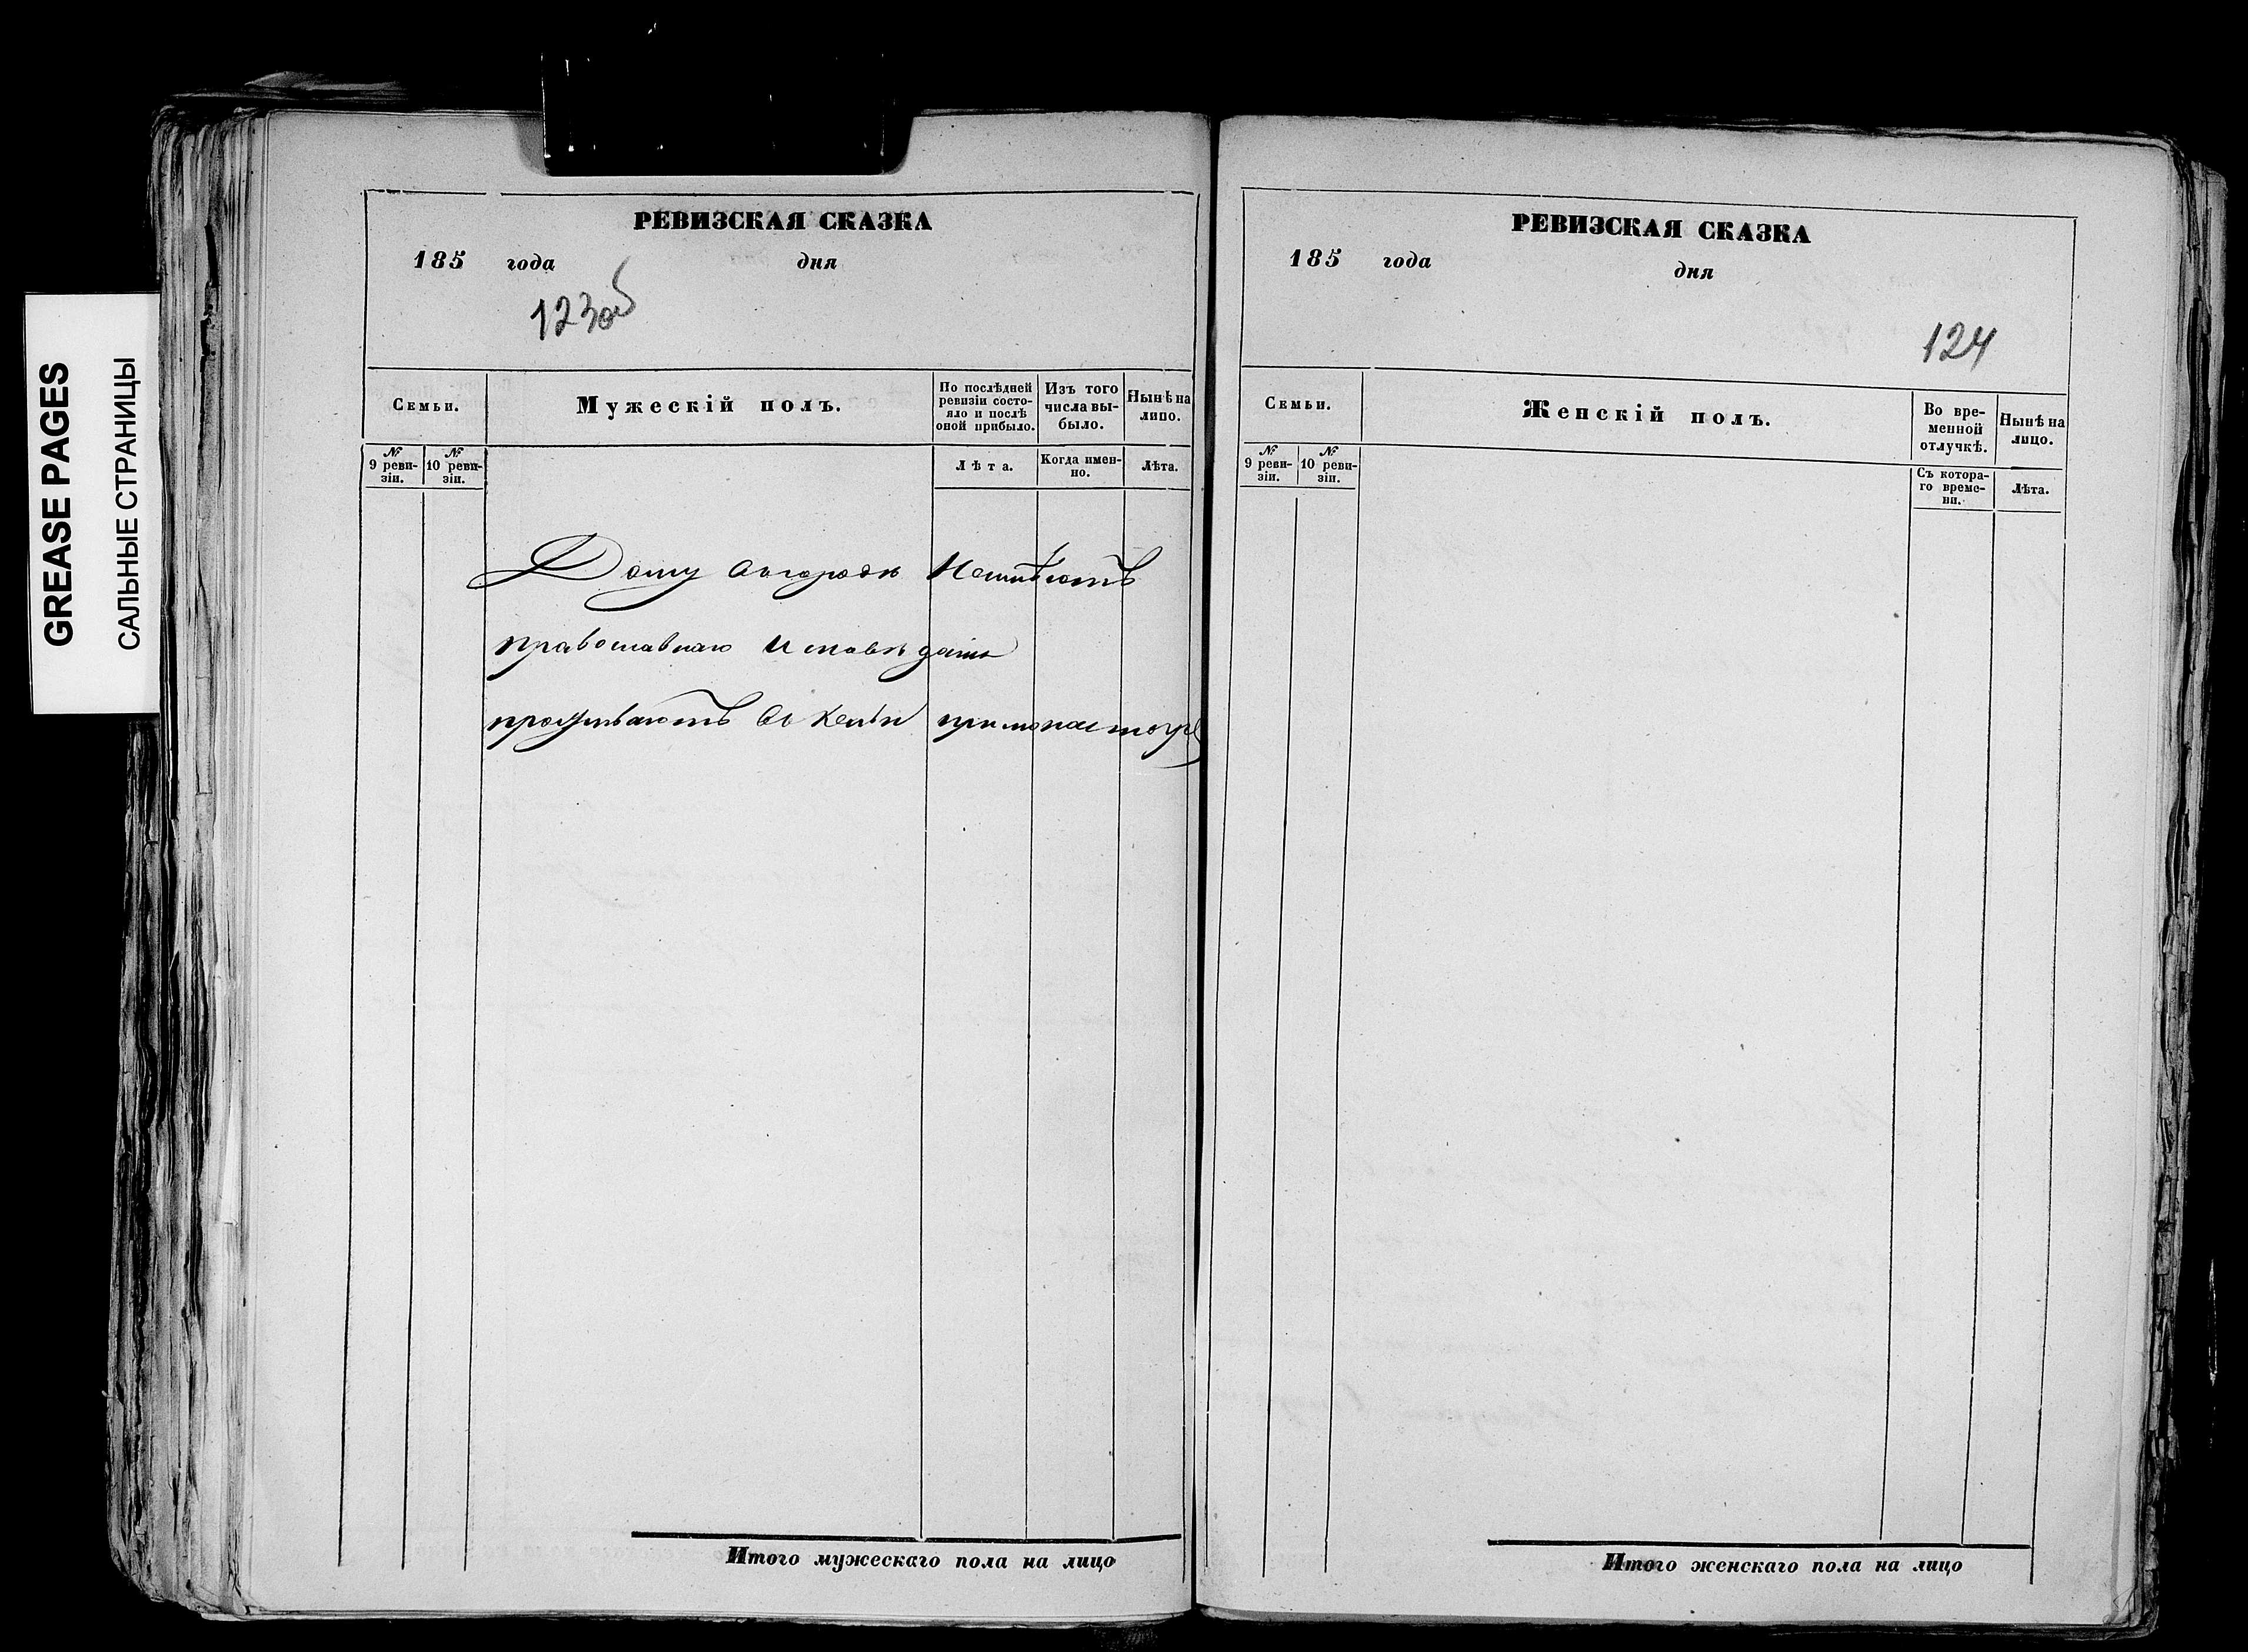 GREASE PAGES
САЛЬНЫЕ СТРАНИЦЫ
РЕВИЗСКАЯ СКАЗКА
185 года дня
123об
Семьи.
Мужескій полъ.
По послѣдней ревизіи состояло и послѣ оной прибыло.
Изъ того числа выбыло.
Нынѣ на лицо.
№ 9 ревизіи.
№ 10 ревизіи.
Лѣта.
Когда именно.
Лѣта.
Дому въ городѣ Неимѣютъ
православнаго Исповѣданія
проживаютъ въ Кельи при монастырѣ
Итого мужескаго пола на лицо
РЕВИЗСКАЯ СКАЗКА
185 года дня
124
Семьи.
Женскій полъ.
Во временной отлучкѣ.
Нынѣ на лицо.
№ 9 ревизіи.
№ 10 ревизіи.
Съ котораго времени.
Лѣта.
Итого женскаго пола на лицо